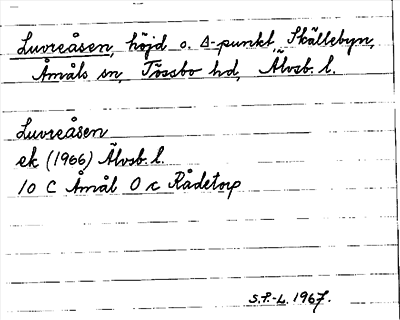 Luvreåsen, höjd o. Δ-punkt, Skällebyn,
Åmåls sn, Tössbo hd, Älvsb. l.
Luvreåsen
ek (1966) Älvsb. l.
10 C Åmål 0 c Rådetorp
S.P.-L. 1967.